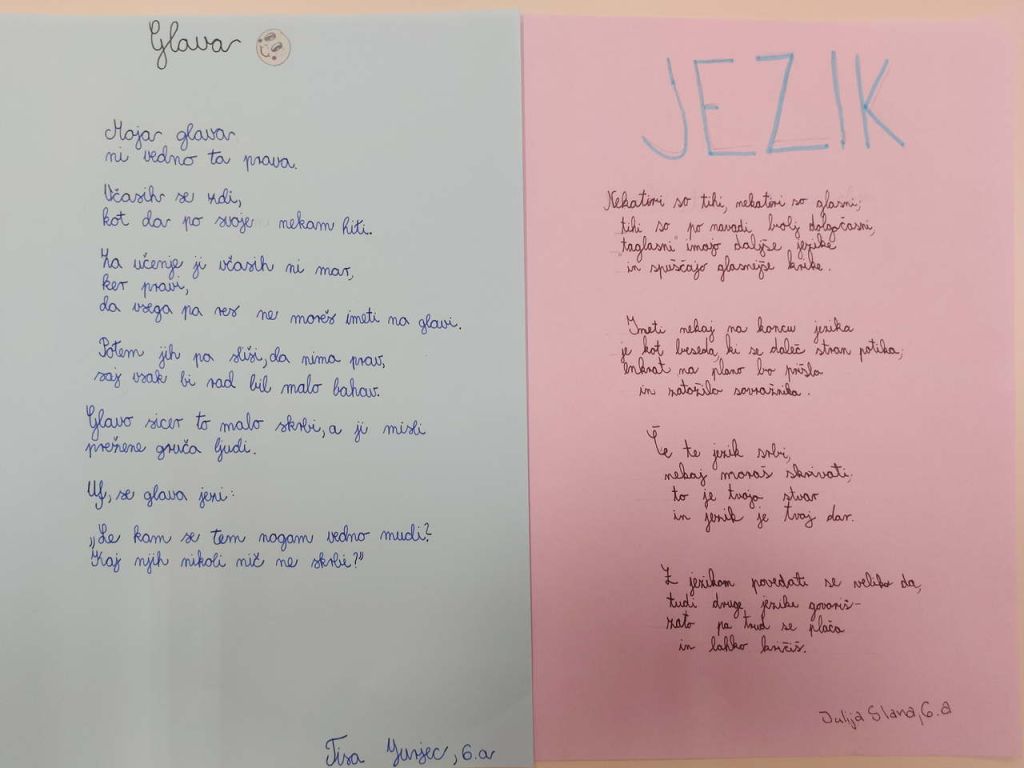 Glava
Moja glava
ni vedno ta prava.
Včasih se zdi,
kot da po svoje nekam hiti.
Za učenje ji včasih ni mar,
ker pravi,
da vsega pa res ne moreš imeti na glavi.
Potem jih pa sliši, da nima prav,
saj vsak bi rad bil malo bahav.
Glavo sicer to malo skrbi, a ji misli
prežene gruča ljudi.
Uf, se glava jezi:
„Le kam se tem nogam vedno mudi?
Kaj njih nikoli nič ne skrbi?"
Tisa Jurjec, 6.a
JEZIK
Nekateri so tihi, nekateri so glasni;
tihi so po navadi bolj dolgočasni,
"taglasni" imajo daljše jezike
in spuščajo glasnejše krike.
Imeti nekaj na koncu jezika
je kot beseda, ki se daleč stran potika;
enkrat na plano bo prišla
in zatožila sovražnika.
Če te jezik srbi,
nekaj moraš skrivati;
to je tvoja stvar
in jezik je tvoj dar.
Z jezikom povedati se veliko da,
tudi druge jezike govoriš-
zato pa trud se plača
in lahko kričiš.
Julija Slana, 6.a